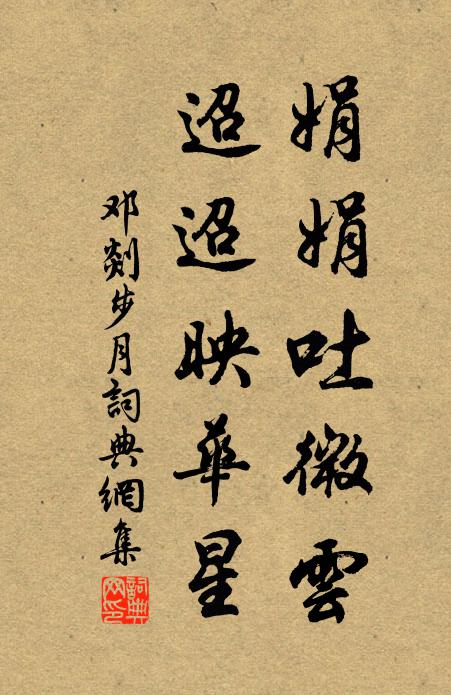 娟娟吐微雲
迢迢映華星
邓剡步月詞典網集
詞典网印